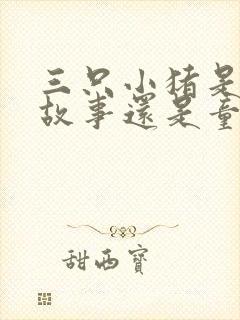 三只小猪是
故事還是童
甜西寶